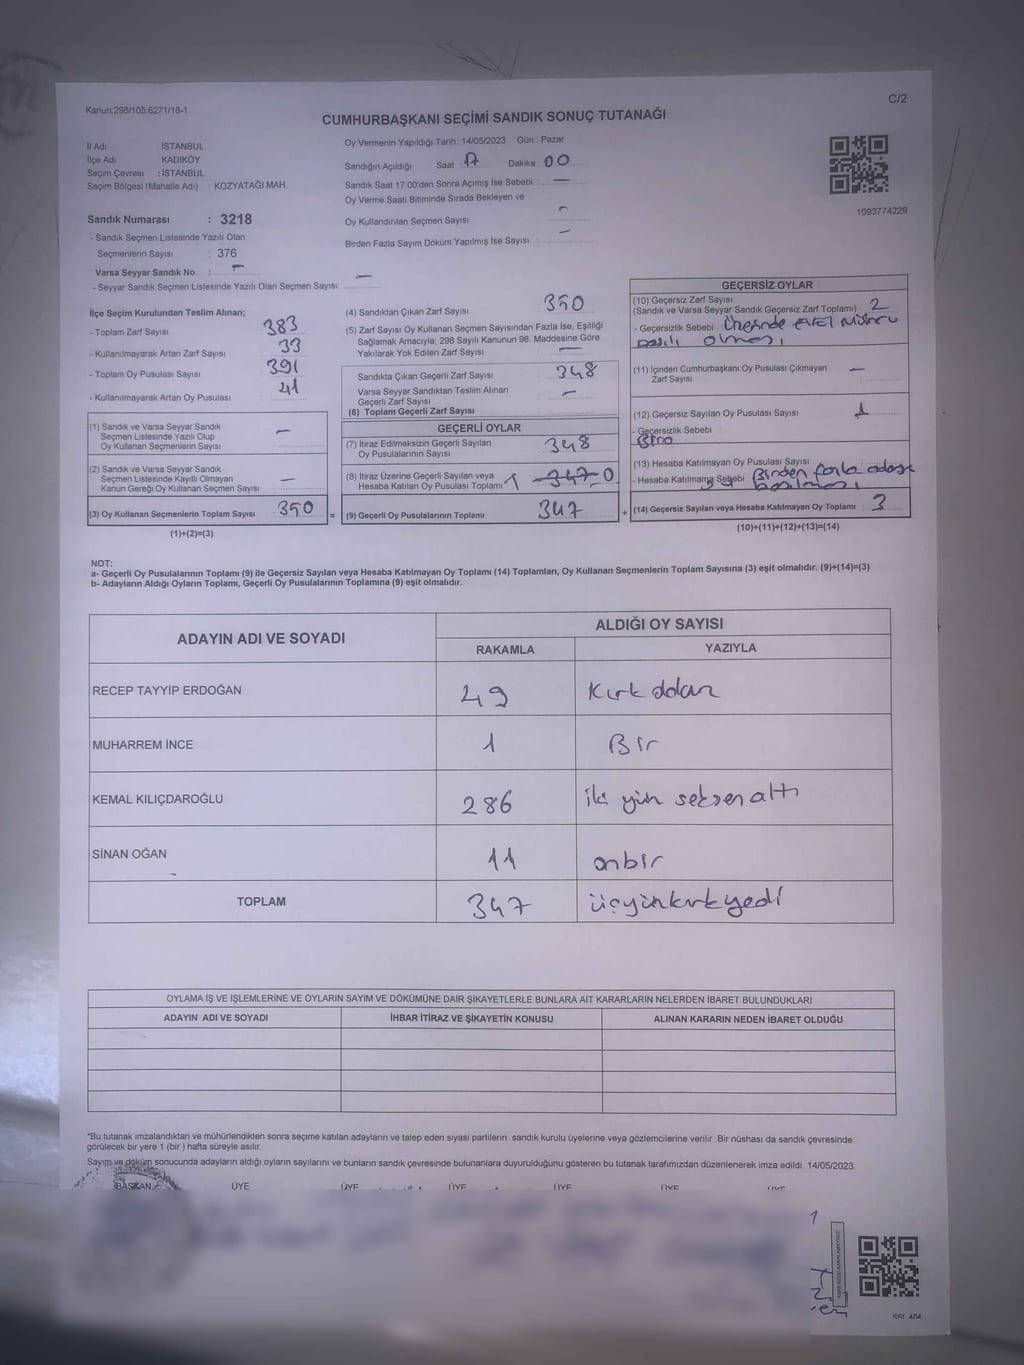 Kanun;298/105;6271/18-1
C/2
CUMHURBAŞKANI SEÇİMİ SANDIK SONUÇ TUTANAĞI
İl Adı : İSTANBUL
İlçe Adı : KADIKÖY
Seçim Çevresi : İSTANBUL
Seçim Bölgesi (Mahalle Adı) : KOZYATAĞI MAH.
Sandık Numarası : 3218
- Sandık Seçmen Listesinde Yazılı Olan
Seçmenlerin Sayısı : 376
Varsa Seyyar Sandık No : -
- Seyyar Sandık Seçmen Listesinde Yazılı Olan Seçmen Sayısı: -
Oy Vermenin Yapıldığı Tarih : 14/05/2023 Gün : Pazar
Sandığın Açıldığı Saat 17 Dakika 00
Sandık Saat 17:00'den Sonra Açımış İse Sebebi -
Oy Verme Saati Bitiminde Sırada Bekleyen ve
Oy Kullandırılan Seçmen Sayısı -
Birden Fazla Sayım Döküm Yapılmış İse Sayısı -
1093774229
İlçe Seçim Kurulundan Teslim Alınan;
- Toplam Zarf Sayısı 383
- Kullanılmayarak Artan Zarf Sayısı 33
- Toplam Oy Pusulası Sayısı 391
- Kullanılmayarak Artan Oy Pusulası 41
(1) Sandık ve Varsa Seyyar Sandık
Seçmen Listesinde Yazılı Olup
Oy Kullanan Seçmenlerin Sayısı -
(2) Sandık ve Varsa Seyyar Sandık
Seçmen Listesinde Kayıtlı Olmayan
Kanun Gereği Oy Kullanan Seçmen Sayısı -
(3) Oy Kullanan Seçmenlerin Toplam Sayısı 350 =
(1)+(2)=(3)
(4) Sandıktan Çıkan Zarf Sayısı 350
(5) Zarf Sayısı Oy Kullanan Seçmen Sayısından Fazla İse, Eşitliği
Sağlamak Amacıyla; 298 Sayılı Kanunun 98. Maddesine Göre
Yakılarak Yok Edilen Zarf Sayısı -
Sandıkta Çıkan Geçerli Zarf Sayısı 348
Varsa Seyyar Sandıktan Teslim Alınan
Geçerli Zarf Sayısı -
(6) Toplam Geçerli Zarf Sayısı
GEÇERLİ OYLAR
(7) İtiraz Edilmeksizin Geçerli Sayılan
Oy Pusulalarının Sayısı 348
(8) İtiraz Üzerine Geçerli Sayılan veya
Hesaba Katılan Oy Pusulası Toplamı 347 0
(9) Geçerli Oy Pusulalarının Toplamı 347 +
GEÇERSİZ OYLAR
(10) Geçersiz Zarf Sayısı
(Sandık ve Varsa Seyyar Sandık Geçersiz Zarf Toplamı) 2
- Geçersizlik Sebebi Üzerinde EVET Mührü
basılı olması
(11) İçinden Cumhurbaşkanı Oy Pusulası Çıkmayan
Zarf Sayısı -
(12) Geçersiz Sayılan Oy Pusulası Sayısı 1
- Geçersizlik Sebebi
(13) Hesaba Katılmayan Oy Pusulası Sayısı
- Hesaba Katılmama Sebebi Birden fazla adaya
basılması
(14) Geçersiz Sayılan veya Hesaba Katılmayan Oy Toplamı : 3
(10)+(11)+(12)+(13)=(14)
NOT:
a- Geçerli Oy Pusulalarının Toplamı (9) ile Geçersiz Sayılan veya Hesaba Katılmayan Oy Toplamı (14) Toplamları, Oy Kullanan Seçmenlerin Toplam Sayısına (3) eşit olmalıdır. (9)+(14)=(3)
b- Adayların Aldığı Oyların Toplamı, Geçerli Oy Pusulalarının Toplamına (9) eşit olmalıdır.
ADAYIN ADI VE SOYADI
ALDIĞI OY SAYISI
RAKAMLA YAZIYLA
RECEP TAYYİP ERDOĞAN 49 Kırk dokuz
MUHARREM İNCE 1 Bir
KEMAL KILIÇDAROĞLU 286 iki yüz seksen altı
SİNAN OĞAN 11 onbir
TOPLAM 347 üçyüzkırkyedi
OYLAMA İŞ VE İŞLEMLERİNE VE OYLARIN SAYIM VE DÖKÜMÜNE DAİR ŞİKAYETLERLE BUNLARA AİT KARARLARIN NELERDEN İBARET BULUNDUKLARI
ADAYIN ADI VE SOYADI İHBAR İTİRAZ VE ŞİKAYETİN KONUSU ALINAN KARARIN NEDEN İBARET OLDUĞU
"Bu tutanak imzalandıktan ve mühürlendikten sonra seçime katılan adayların ve talep eden siyasi partilerin sandık kurulu üyelerine veya gözlemcilerine verilir. Bir nüshası da sandık çevresinde
görülecek bir yere 1 (bir ) hafta süreyle asılır.
Sayım ve döküm sonucunda adayların aldığı oyların sayılarını ve bunların sandık çevresinde bulunanlara duyurulduğunu gösteren bu tutanak tarafımızdan düzenlenerek imza edildi. 14/05/2023
BAŞKAN ÜYE ÜYE ÜYE ÜYE ÜYE ÜYE